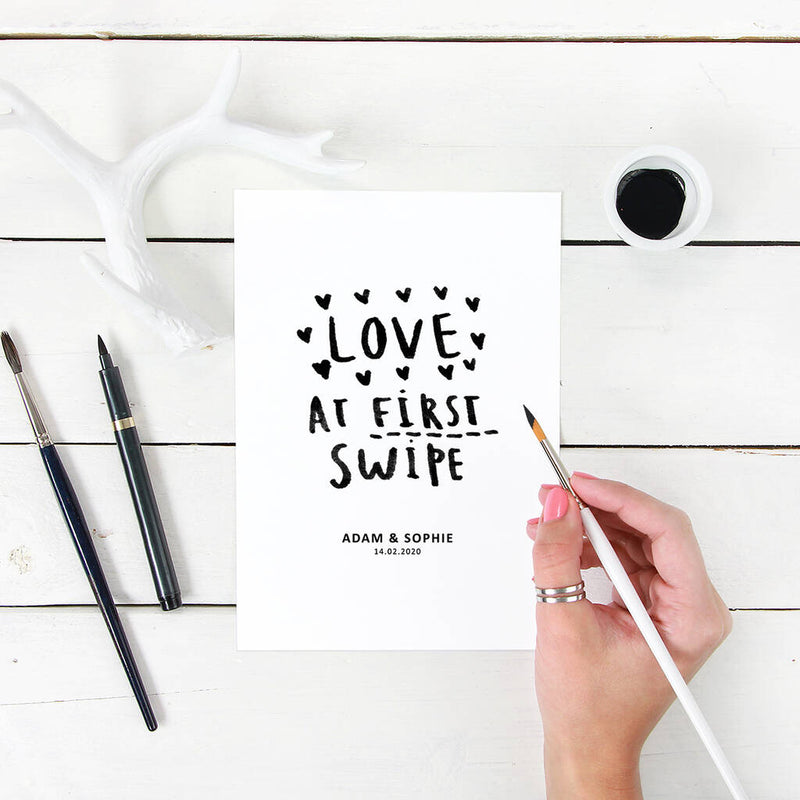 LOVE
AT FIRST
SWIPE
ADAM & SOPHIE
14.02.2020